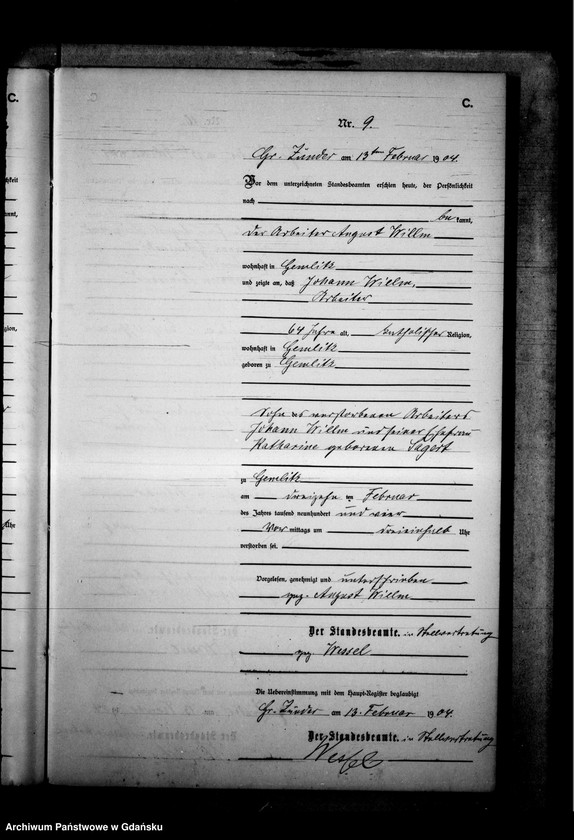 C.
C.
Nr. 9.
Gr. Zünder am 13ten Februar 1904.
Vor dem unterzeichneten Standesbeamten erschien heute, der Persönlichkeit
nach
bekannt,
der Arbeiter August Willm
wohnhaft in Gemlitz
und zeigte an, daß Johann Willm,
Arbeiter
64 Jahre alt, katholischer Religion,
wohnhaft in Gemlitz
geboren zu Gemlitz
Sohn des verstorbenen Arbeiters
Johann Willm und seiner Ehefrau
Katharine geborenen Sagert
zu Gemlitz
am dreizehnten Februar
des Jahres tausend neunhundert und vier
Vormittags um dreieinhalb Uhr
verstorben sei.
Vorgelesen, genehmigt und unterschrieben
gez. August Willm
Der Standesbeamte. in Stellvertretung
gez Wessel
Die Uebereinstimmung mit dem Haupt-Register beglaubigt
Gr. Zünder am 13. Februar 1904.
Der Standesbeamte. in Stellvertretung
Wessel
Archiwum Państwowe w Gdańsku